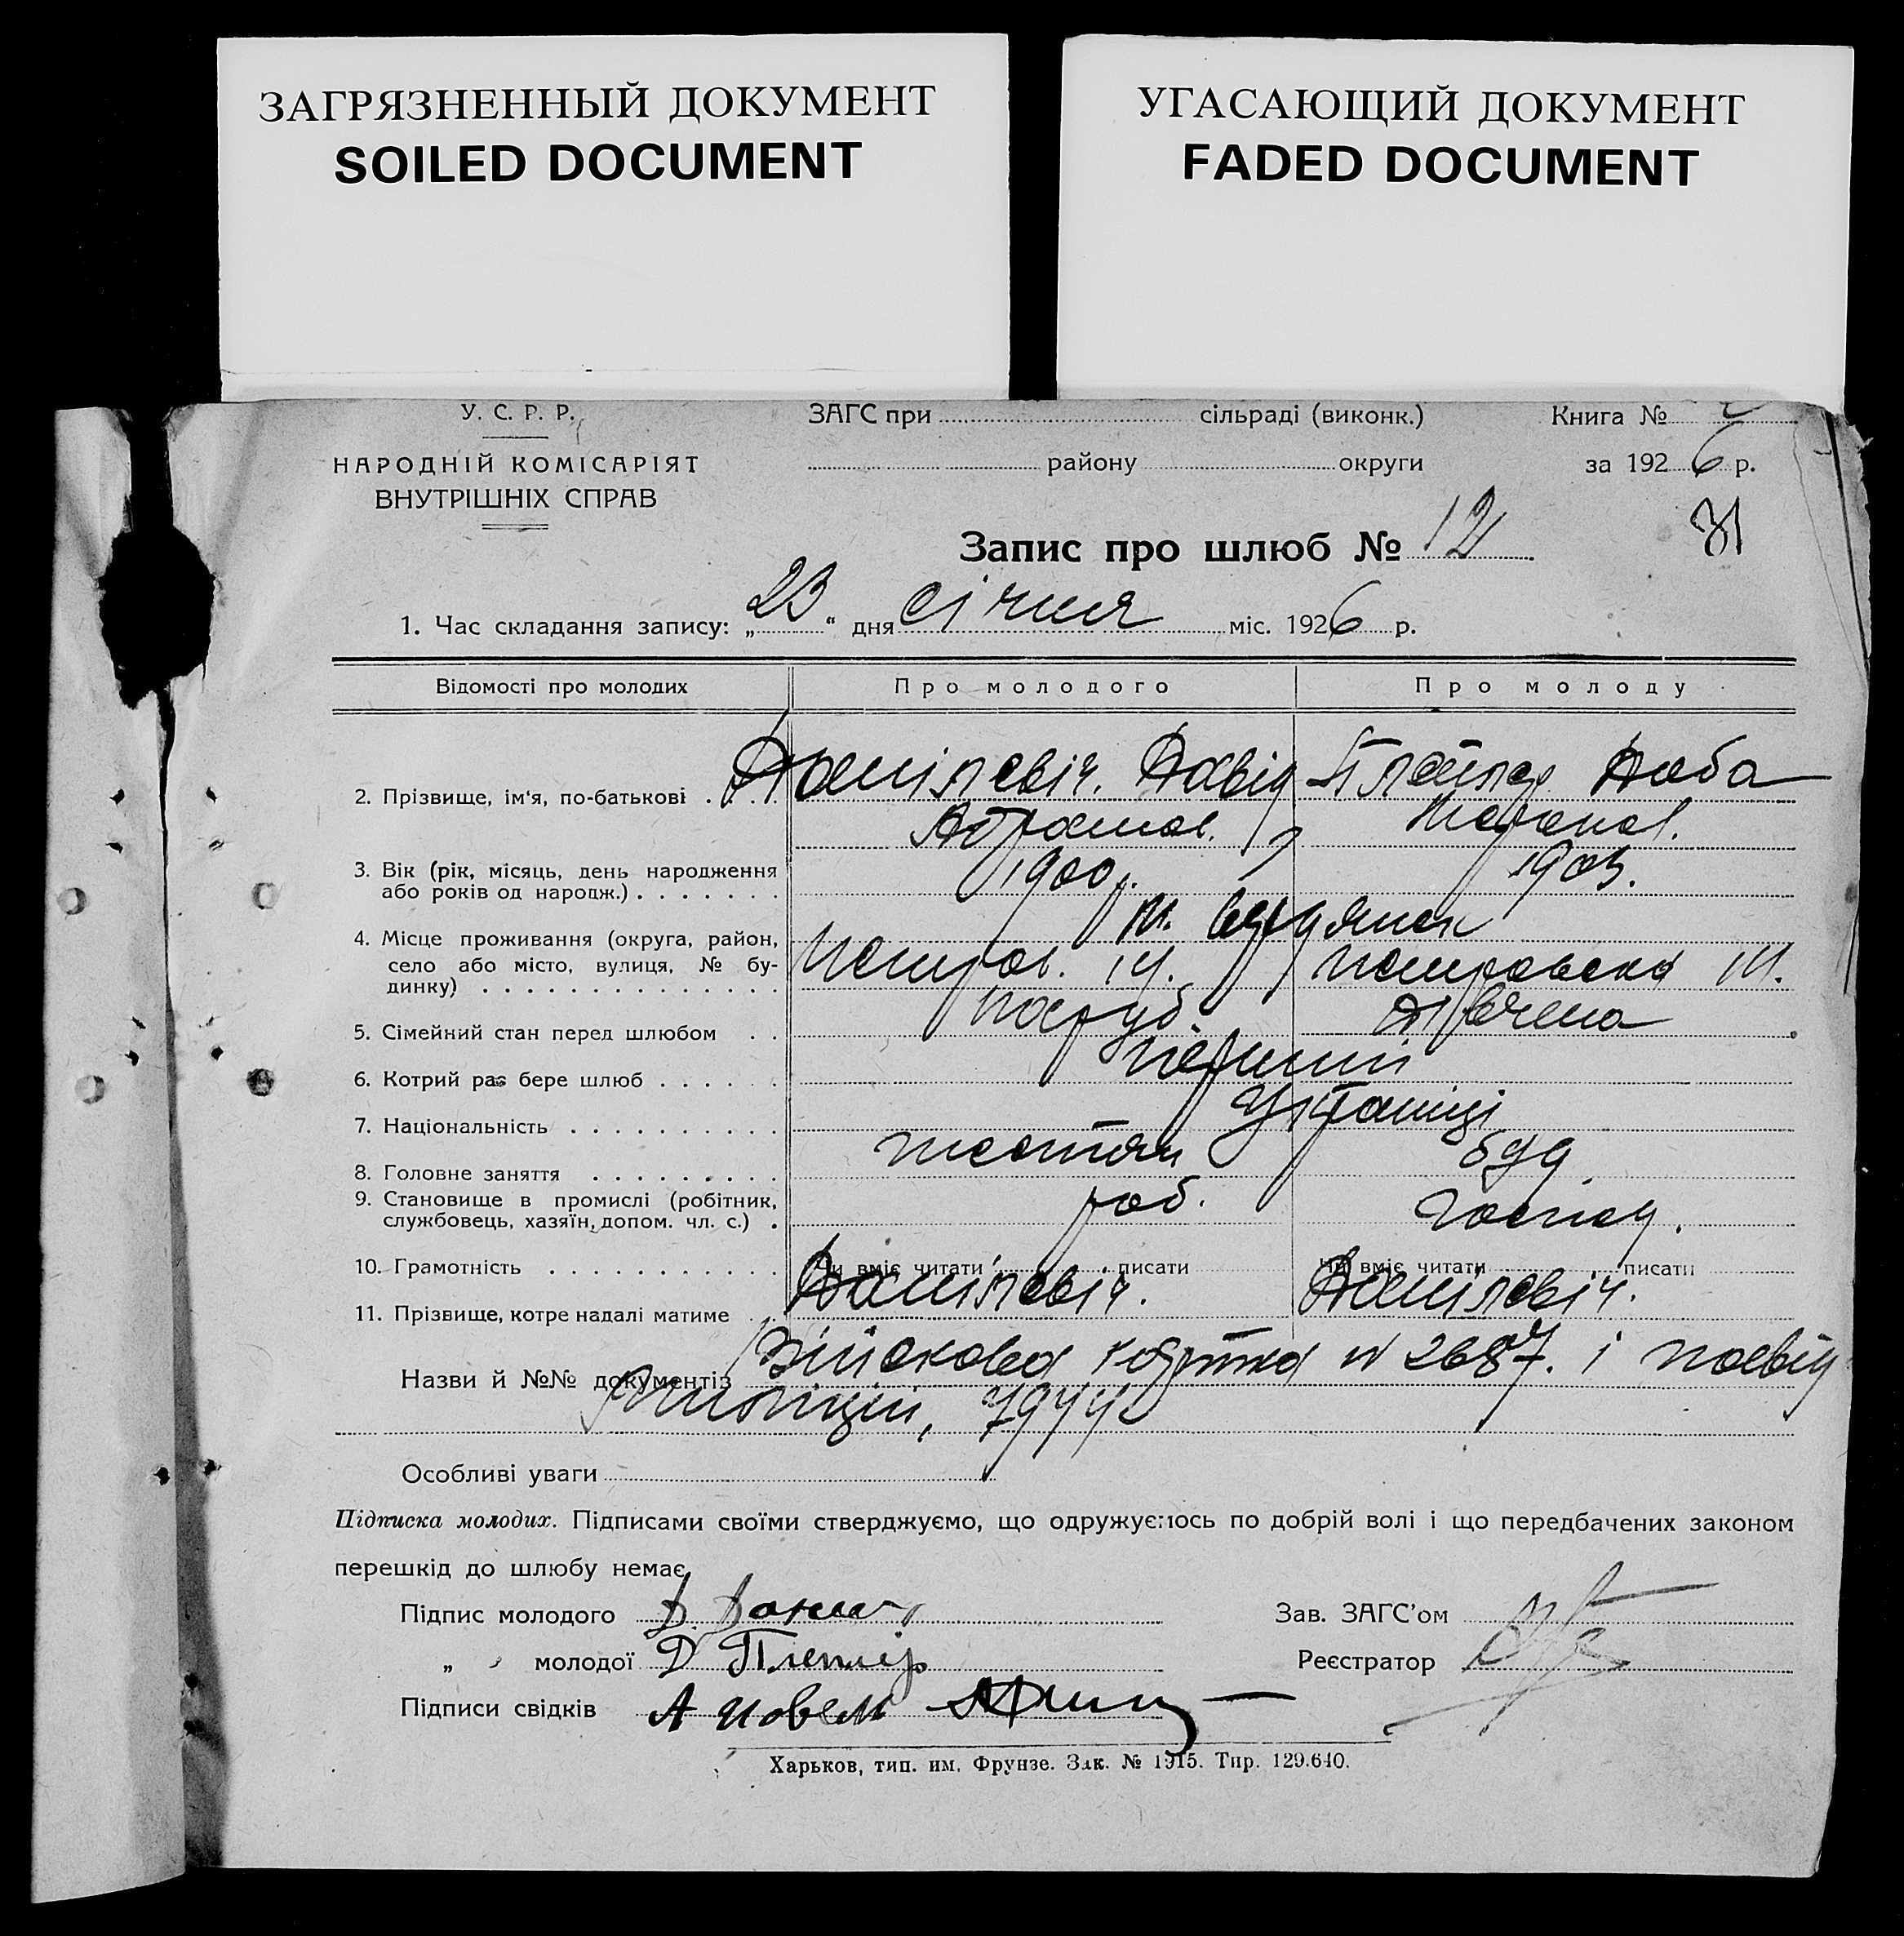 ЗАГРЯЗНЕННЫЙ ДОКУМЕНТ
SOILED DOCUMENT
УГАСАЮЩИЙ ДОКУМЕНТ
FADED DOCUMENT
У. С. Р. Р.
НАРОДНІЙ КОМІСАРІЯТ
ВНУТРІШНІХ СПРАВ
ЗАГС при сільраді (виконк.)
району округи
Книга №
за 1926 р.
31
Запис про шлюб № 12
1. Час складання запису: „23“ дня січня міс. 1926 р.
Відомості про молодих Про молодого Про молоду
2. Прізвище, ім'я, по-батькові . . . . Данілевіч. Давід Доба
Абрамов.
3. Вік (рік, місяць, день народження
або років од народж.) . . . . . . . 1900 р. 1903.
4. Місце проживання (округа, район, м.
село або місто, вулиця, № бу-
динку) . . . . . . . . . . . . . . Петров. 14. Петровска 14.
5. Сімейний стан перед шлюбом . . паруб. дівчена
6. Котрий раз бере шлюб . . . . . . перший
7. Національність . . . . . . . . . .
8. Головне заняття . . . . . . . . .
9. Становище в промислі (робітник,
службовець, хазяїн, допом. чл. с.) . роб. господ.
10. Грамотність . . . . . . . . . . . Чи вміє читати писати Чи вміє читати писати
11. Прізвище, котре надалі матиме . . Данілевіч. Данілевіч.
Назви й №№ документів Війскова картка № 2687. і посвід
міліції, 7944
Особливі уваги
Підписка молодих. Підписами своїми стверджуємо, що одружуємось по добрій волі і що передбачених законом
перешкід до шлюбу немає
Підпис молодого Д.
„ молодої Д
Підписи свідків А
Зав. ЗАГС'ом
Реєстратор
Харьков, тип. им. Фрунзе. Зак. № 1915. Тир. 129.640.